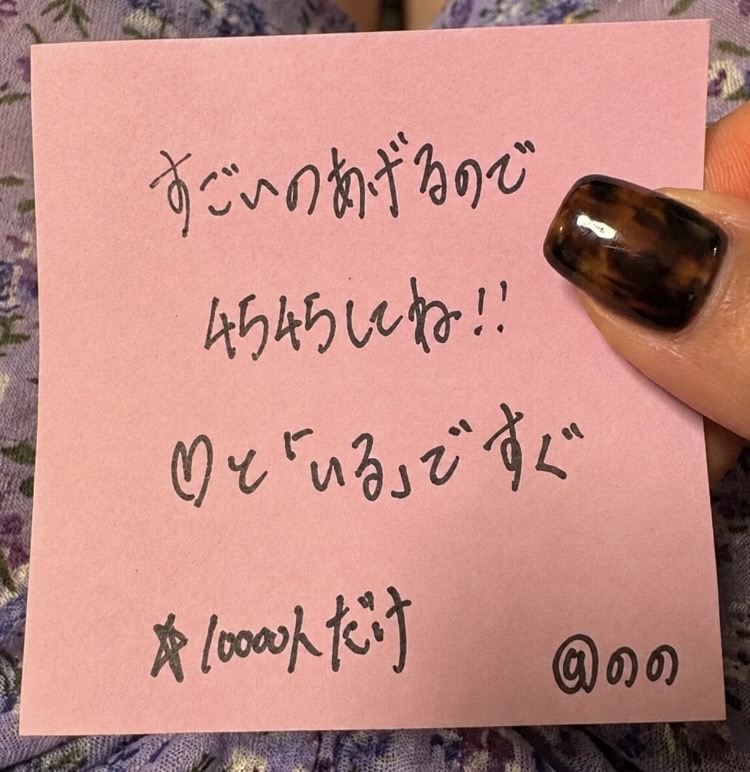 すごいのあげるので
4545してね!!
♡と「いる」ですぐ
☆10000人だけ
@のの